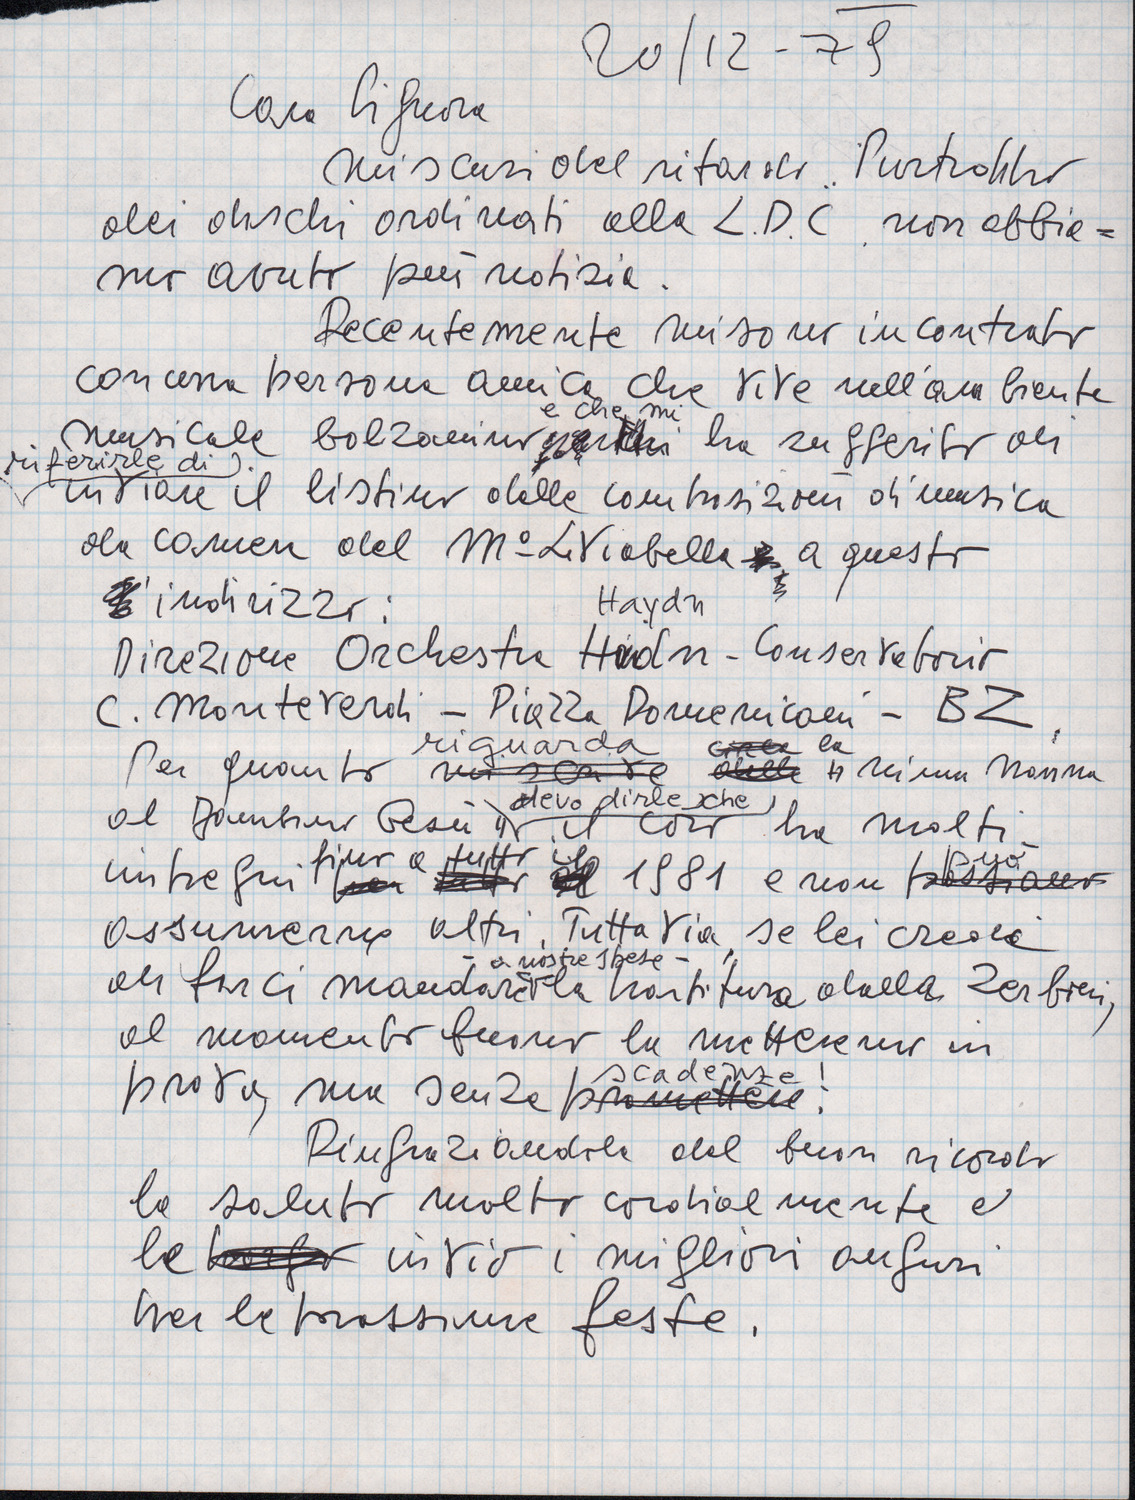 20/12-79
Cara Signora
mi scusi del ritardo. Purtroppo
dei dischi ordinati alla L.D.C. non abbia=
mo avuto più notizia.
Recentemente mi sono incontrato
con una persona amica che vive nell'ambiente
e che mi
musicale bolzanino ha suggerito di
riferirle di
inviare il listino delle composizioni di musica
da camera del Mº Liviabella a questo
indirizzo:
Haydn
Direzione Orchestra Haidn - Conservatorio
C. Monteverdi - Piazza Domenicani - BZ.
riguarda circa la
Per quanto delle ninna nanna
devo dirle che
al Bambino Gesù il coro ha molti
fino a tutto il può
impegni per tutto il 1981 e non possiamo
assumerne altri. Tuttavia, se lei crede
- a nostre spese -
di farci mandare la partitura dalla Zerboni,
al momento buono la metteremo in
scadenze!
prova, ma senza promettere!
Ringraziandola del buon ricordo
la saluto molto cordialmente e
le porgo invio i migliori auguri
per le prossime feste.